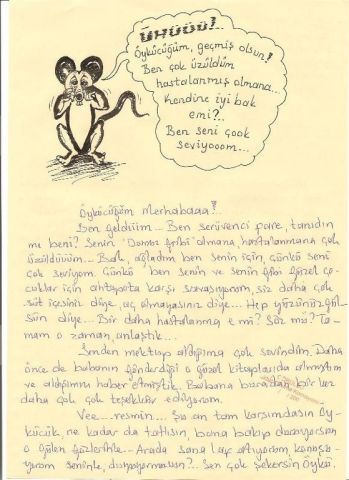 ÜHÜÜÜ!...
Öykücüğüm, geçmiş olsun!
Ben çok üzüldüm
hastalanmış olmana...
Kendine iyi bak
emi?..
Ben seni çook
seviyooom...
Öykücüğüm Merhabaaa!
Ben geldiiim... Ben serüvenci fare, tanıdın
mı beni? Senin 'Domuz gribi' olmana, hastalanmana çok
üzüldüüüm... Bak, ağladım ben senin için, çünkü seni
çok seviyom. Çünkü ben senin ve senin gibi güzel ço-
cuklar için ahtapota karşı savaşıyorum, siz daha çok
süt içesiniz diye, aç olmayasınız diye... Hep yüzünüz gül-
sün diye... Bir daha hastalanma, e mi? Söz mü? Ta-
mam o zaman, anlaştık...
Senden mektup aldığıma çok sevindim. Daha
önce de babanın gönderdiği o güzel kitapları da almıştım
ve aldığımı haber etmiştik. Babana buradan bir kez
daha çok çok teşekkür ediyorum.
Vee... resmin... Şu an tam karşımdasın Öy-
kücük, ne kadar da tatlısın, bana bakıp duruyorsun
o gülen gözlerinle... Arada sana laf atıyorum, konuşu-
yorum seninle, duyuyormusun?.. Sen çok şekersin Öykü.